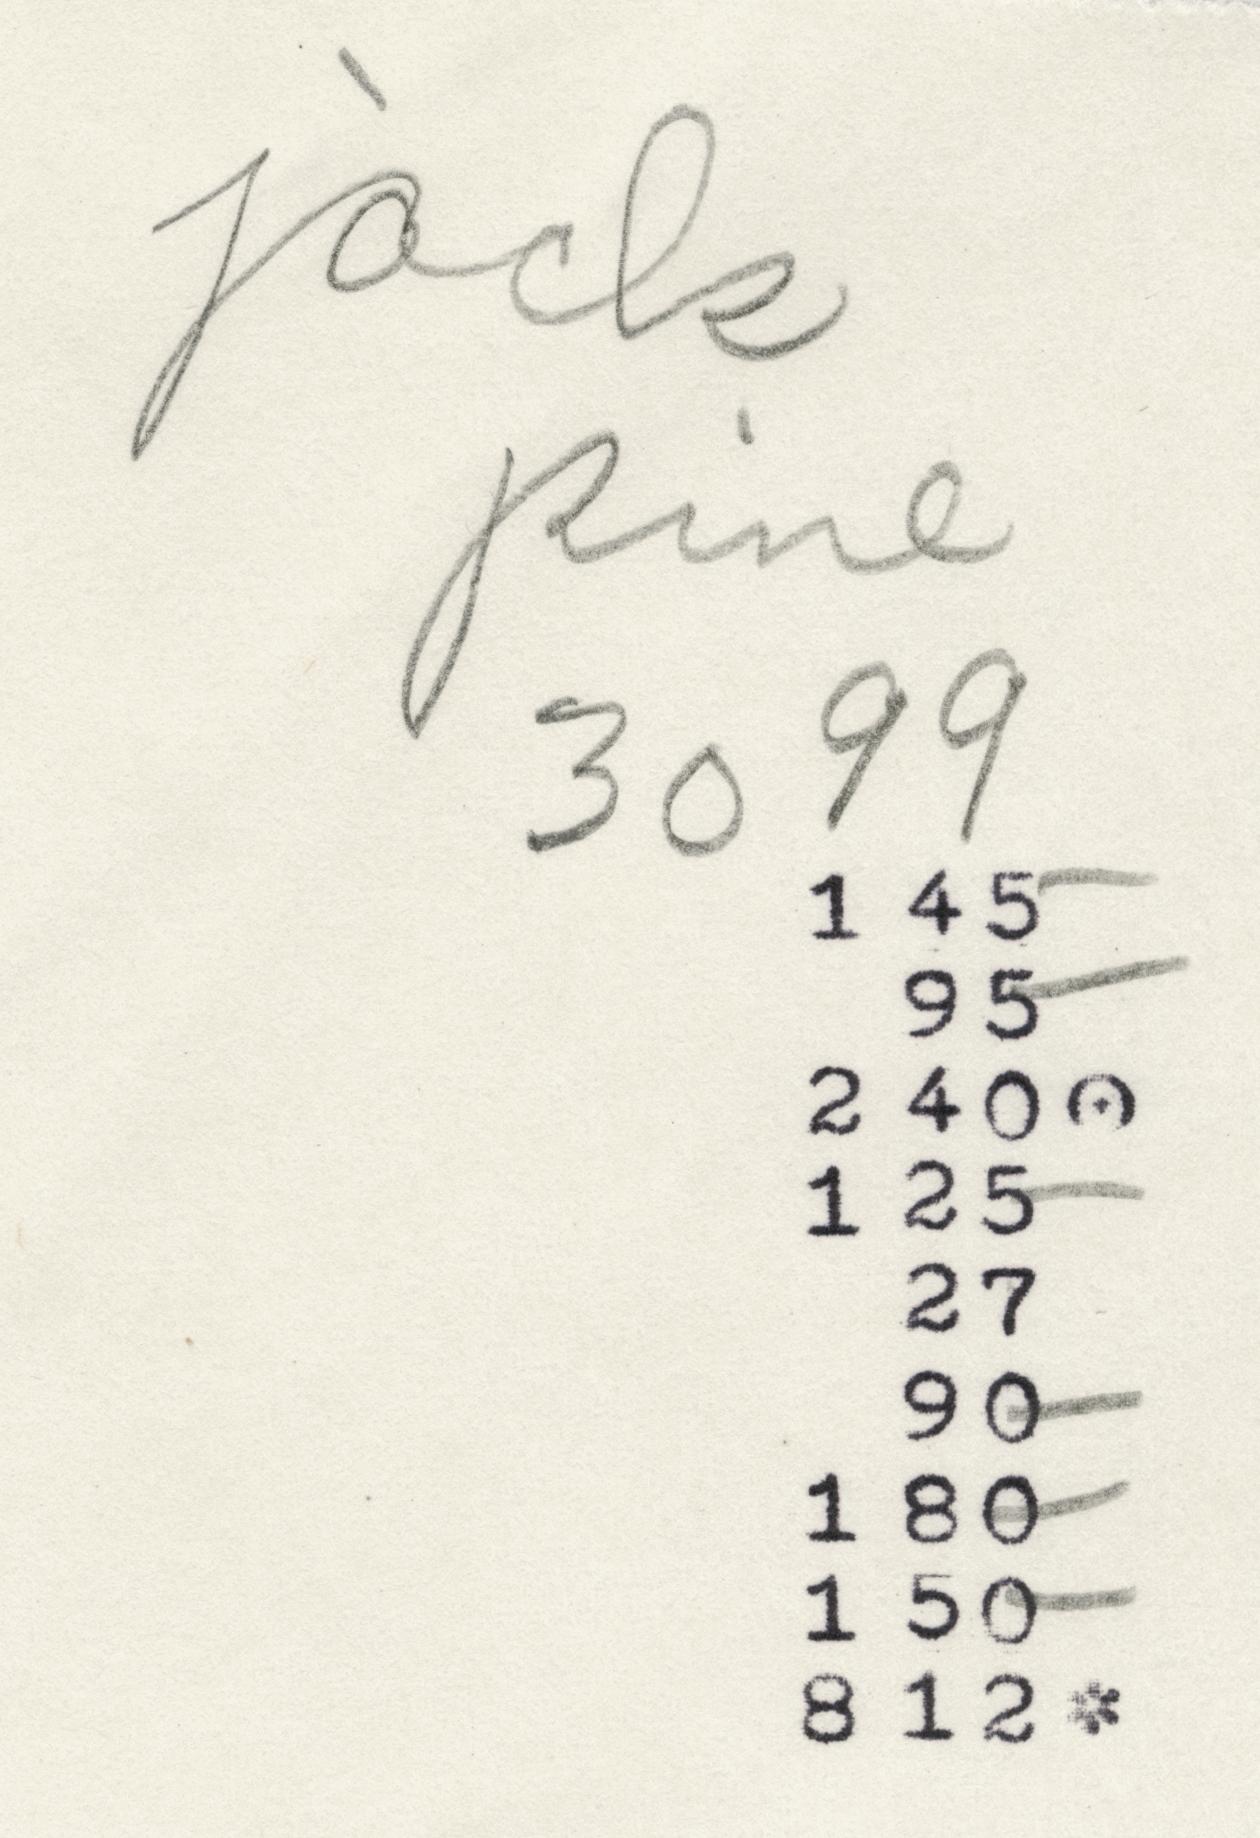 jack
pine
3099
1 45
95
2 40
1 25
27
90
1 80
1 50
8 12 *